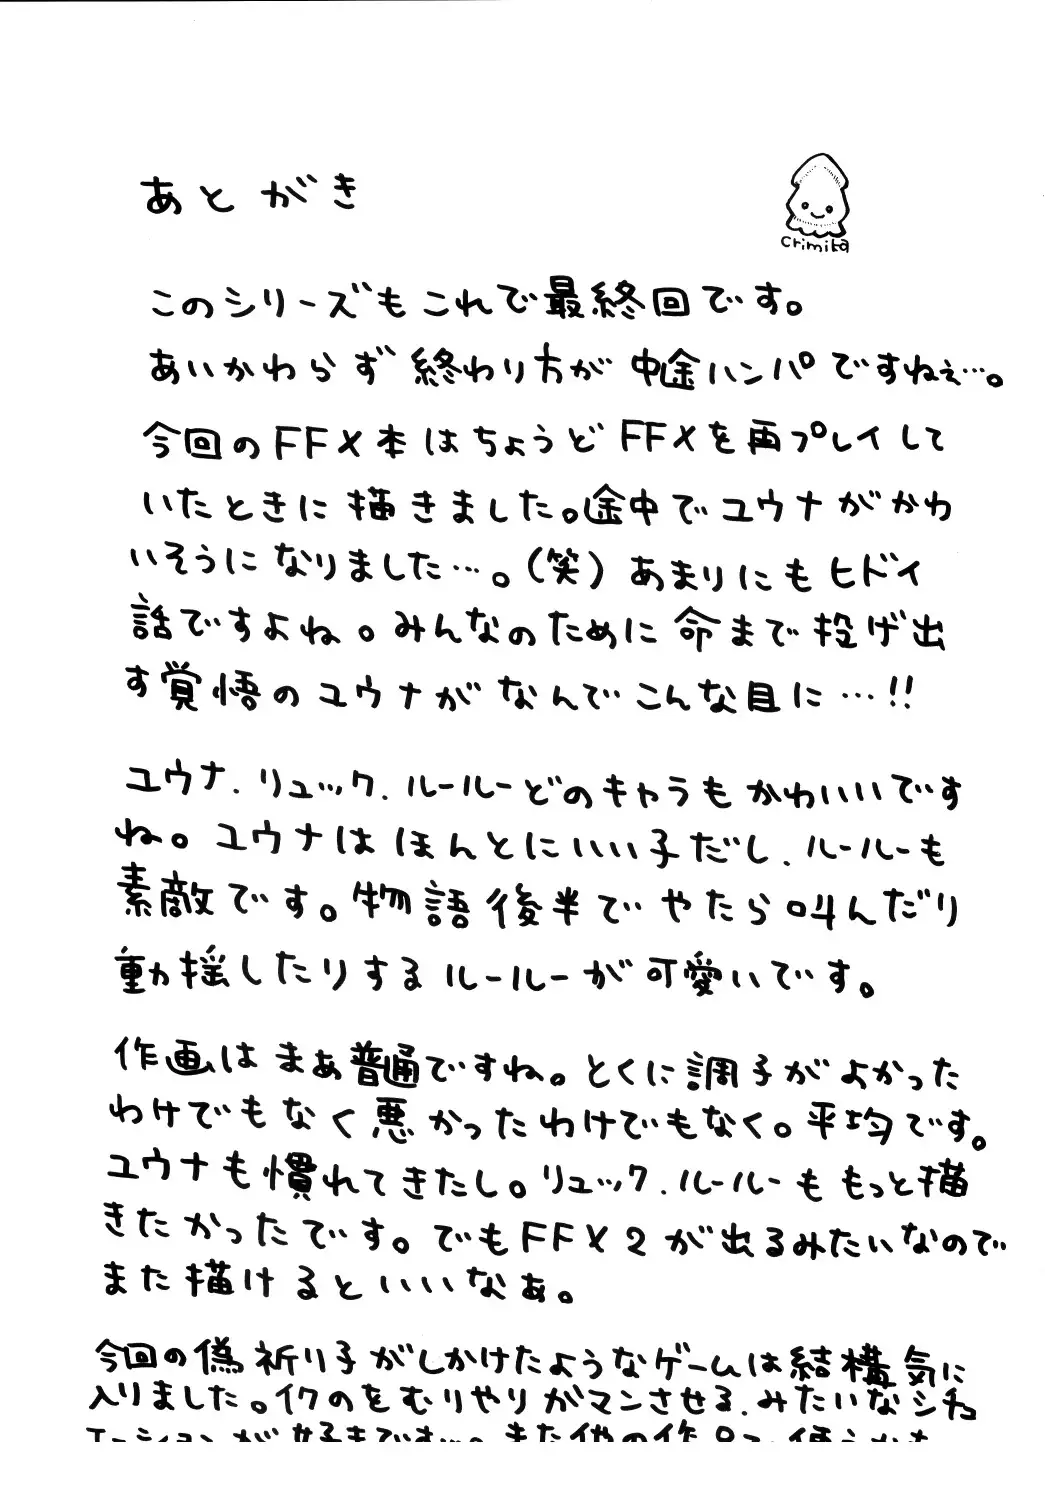 あとがき
Crimita
このシリーズもこれで最終回です。
あいかわらず終わり方が中途ハンパですねぇ…。
今回のFFX本はちょうどFFXを再プレイして
いたときに描きました。途中でユウナがかわ
いそうになりました…。(笑)あまりにもヒドイ
話ですよね。みんなのために命まで投げ出
す覚悟のユウナがなんでこんな目に…!!
ユウナ、リュック、ルールーどのキャラもかわいいです
ね。ユウナはほんとにいい子だし、ルールーも
素敵です。物語後半でやたら叫んだり
動揺したりするルールーが可愛いです。
作画はまあ普通ですね。とくに調子がよかった
わけでもなく悪かったわけでもなく。平均です。
ユウナも慣れてきたし。リュック、ルールーももっと描
きたかったです。でもFFX2が出るみたいなので
また描けるといいなぁ。
今回の偽祈り子がしかけたようなゲームは結構気に
入りました。イクのをむりやりガマンさせる、みたいなシチュ
エーションが好きです…。また他の作品で使うかも